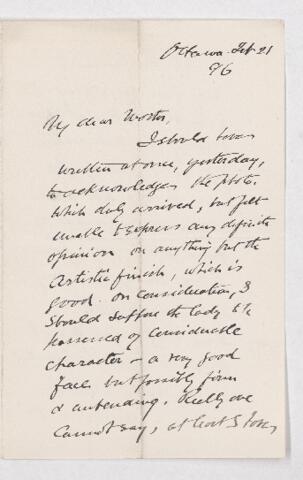 Ottawa. Feb 21
96
My dear
I should have
written at once, yesterday,
to acknowledge the photo.
which duly arrived, but felt
unable to express any definite
opinion on anything but the
Artistic finish, which is
good. On consideration, I
should suppose the lady to be
possessed of considerable
character - a very good
face but possibly firm
& unbending. Really one
cannot say, at least I